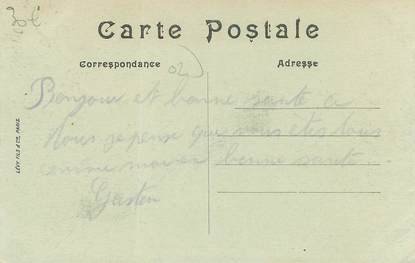 30€
Carte Postale
Correspondance
Adresse
02
Bonjour et bonne santé a
tous je pense que vous êtes tous
comme moi en bonne santé.
Gaston
LÉVY FILS & CIE, PARIS